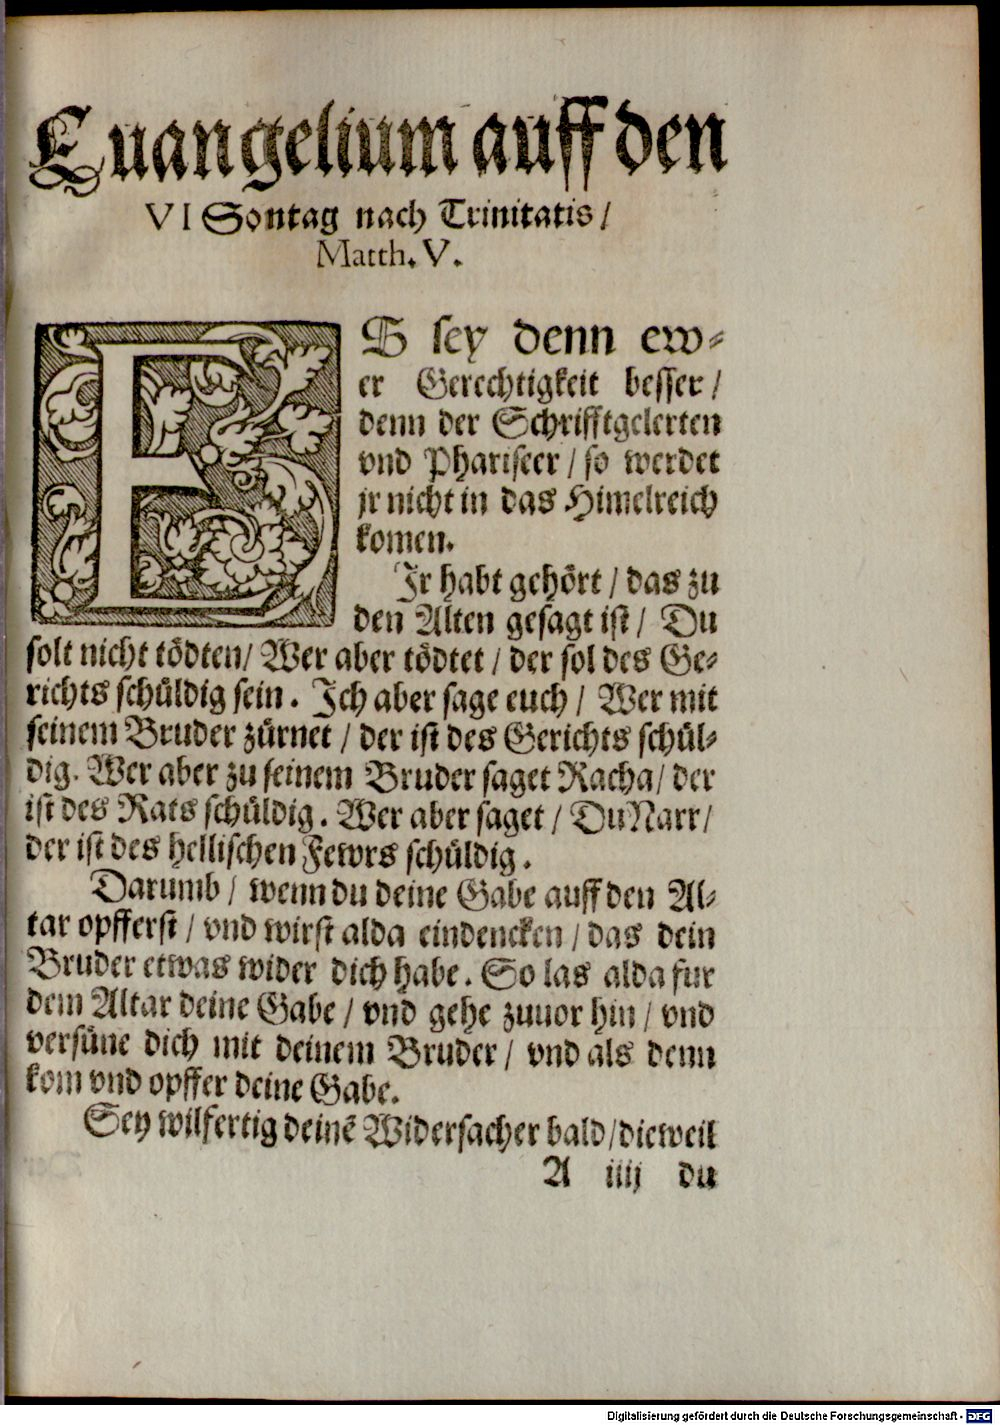 Euangelium auff den
VI Sontag nach Trinitatis /
Matth. V.
ES sey denn ew⸗
er Gerechtigkeit besser /
denn der Schrifftgelerten
vnd Phariseer / so werdet
jr nicht in das Himelreich
komen.
Jr habt gehört / das zu
den Alten gesagt ist / Du
solt nicht tödten / Wer aber tödtet / der sol des Ge⸗
richts schüldig sein . Ich aber sage euch / Wer mit
seinem Bruder zürnet / der ist des Gerichts schül⸗
dig. Wer aber zu seinem Bruder saget Racha / der
ist des Rats schüldig . Wer aber saget / Du Narr /
der ist des hellischen Fewrs schüldig .
Darumb / wenn du deine Gabe auff den Al⸗
tar opfferst / vnd wirst alda eindencken / das dein
Bruder etwas wider dich habe . So las alda fur
dem Altar deine Gabe / vnd gehe zuuor hin / vnd
versüne dich mit deinem Bruder / vnd als denn
kom vnd opffer deine Gabe.
Sey wilfertig deinē Widersacher bald / dieweil
A iiij du
Digitalisierung gefördert durch die Deutsche Forschungsgemeinschaft - DFG